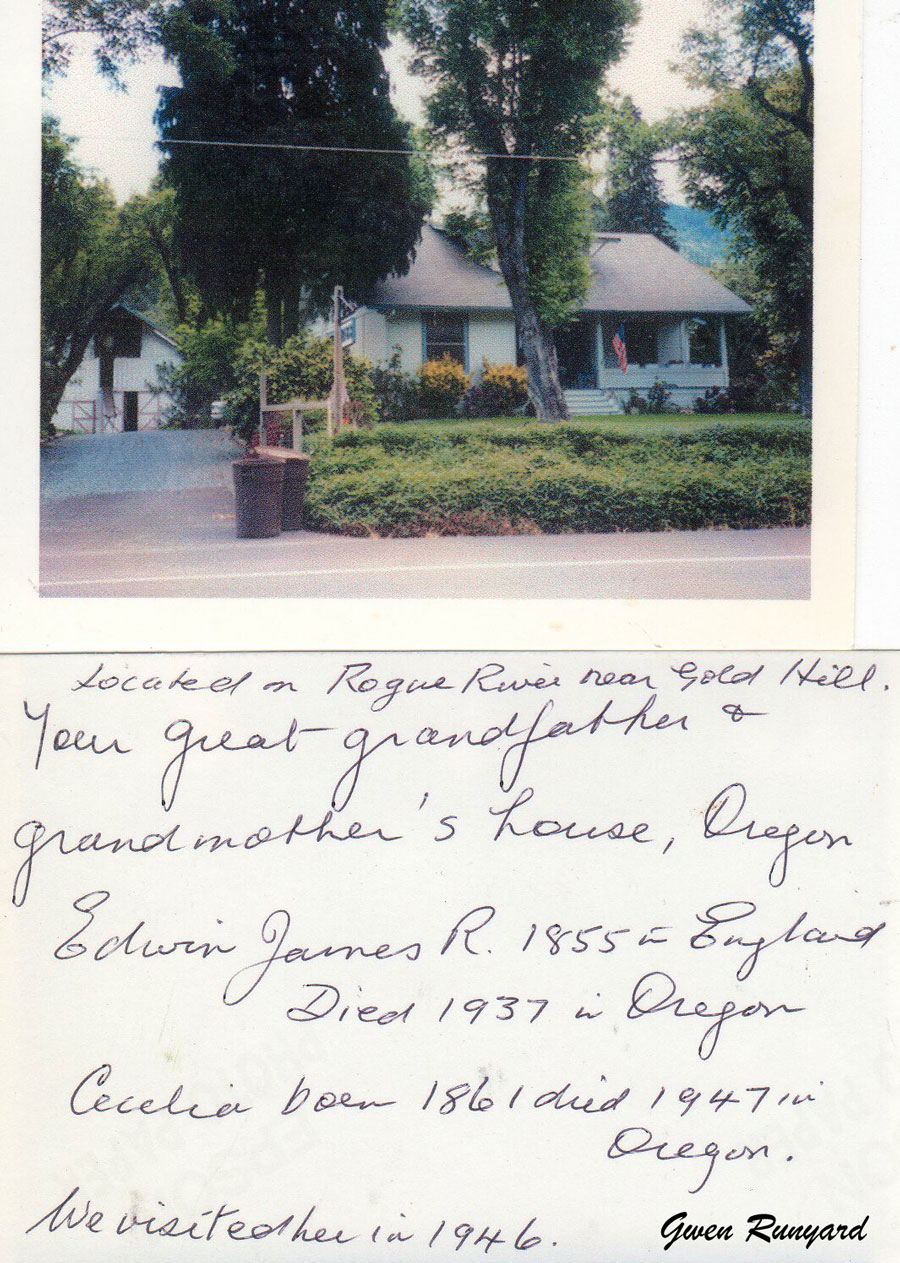 Located on Rogue River near Gold Hill.
Your great grandfather &
grandmother's house, Oregon
Edwin James R. 1855 in England
Died 1937 in Oregon
Cecelia born 1861 died 1947 in
Oregon.
We visited her in 1946.
Gwen Runyard